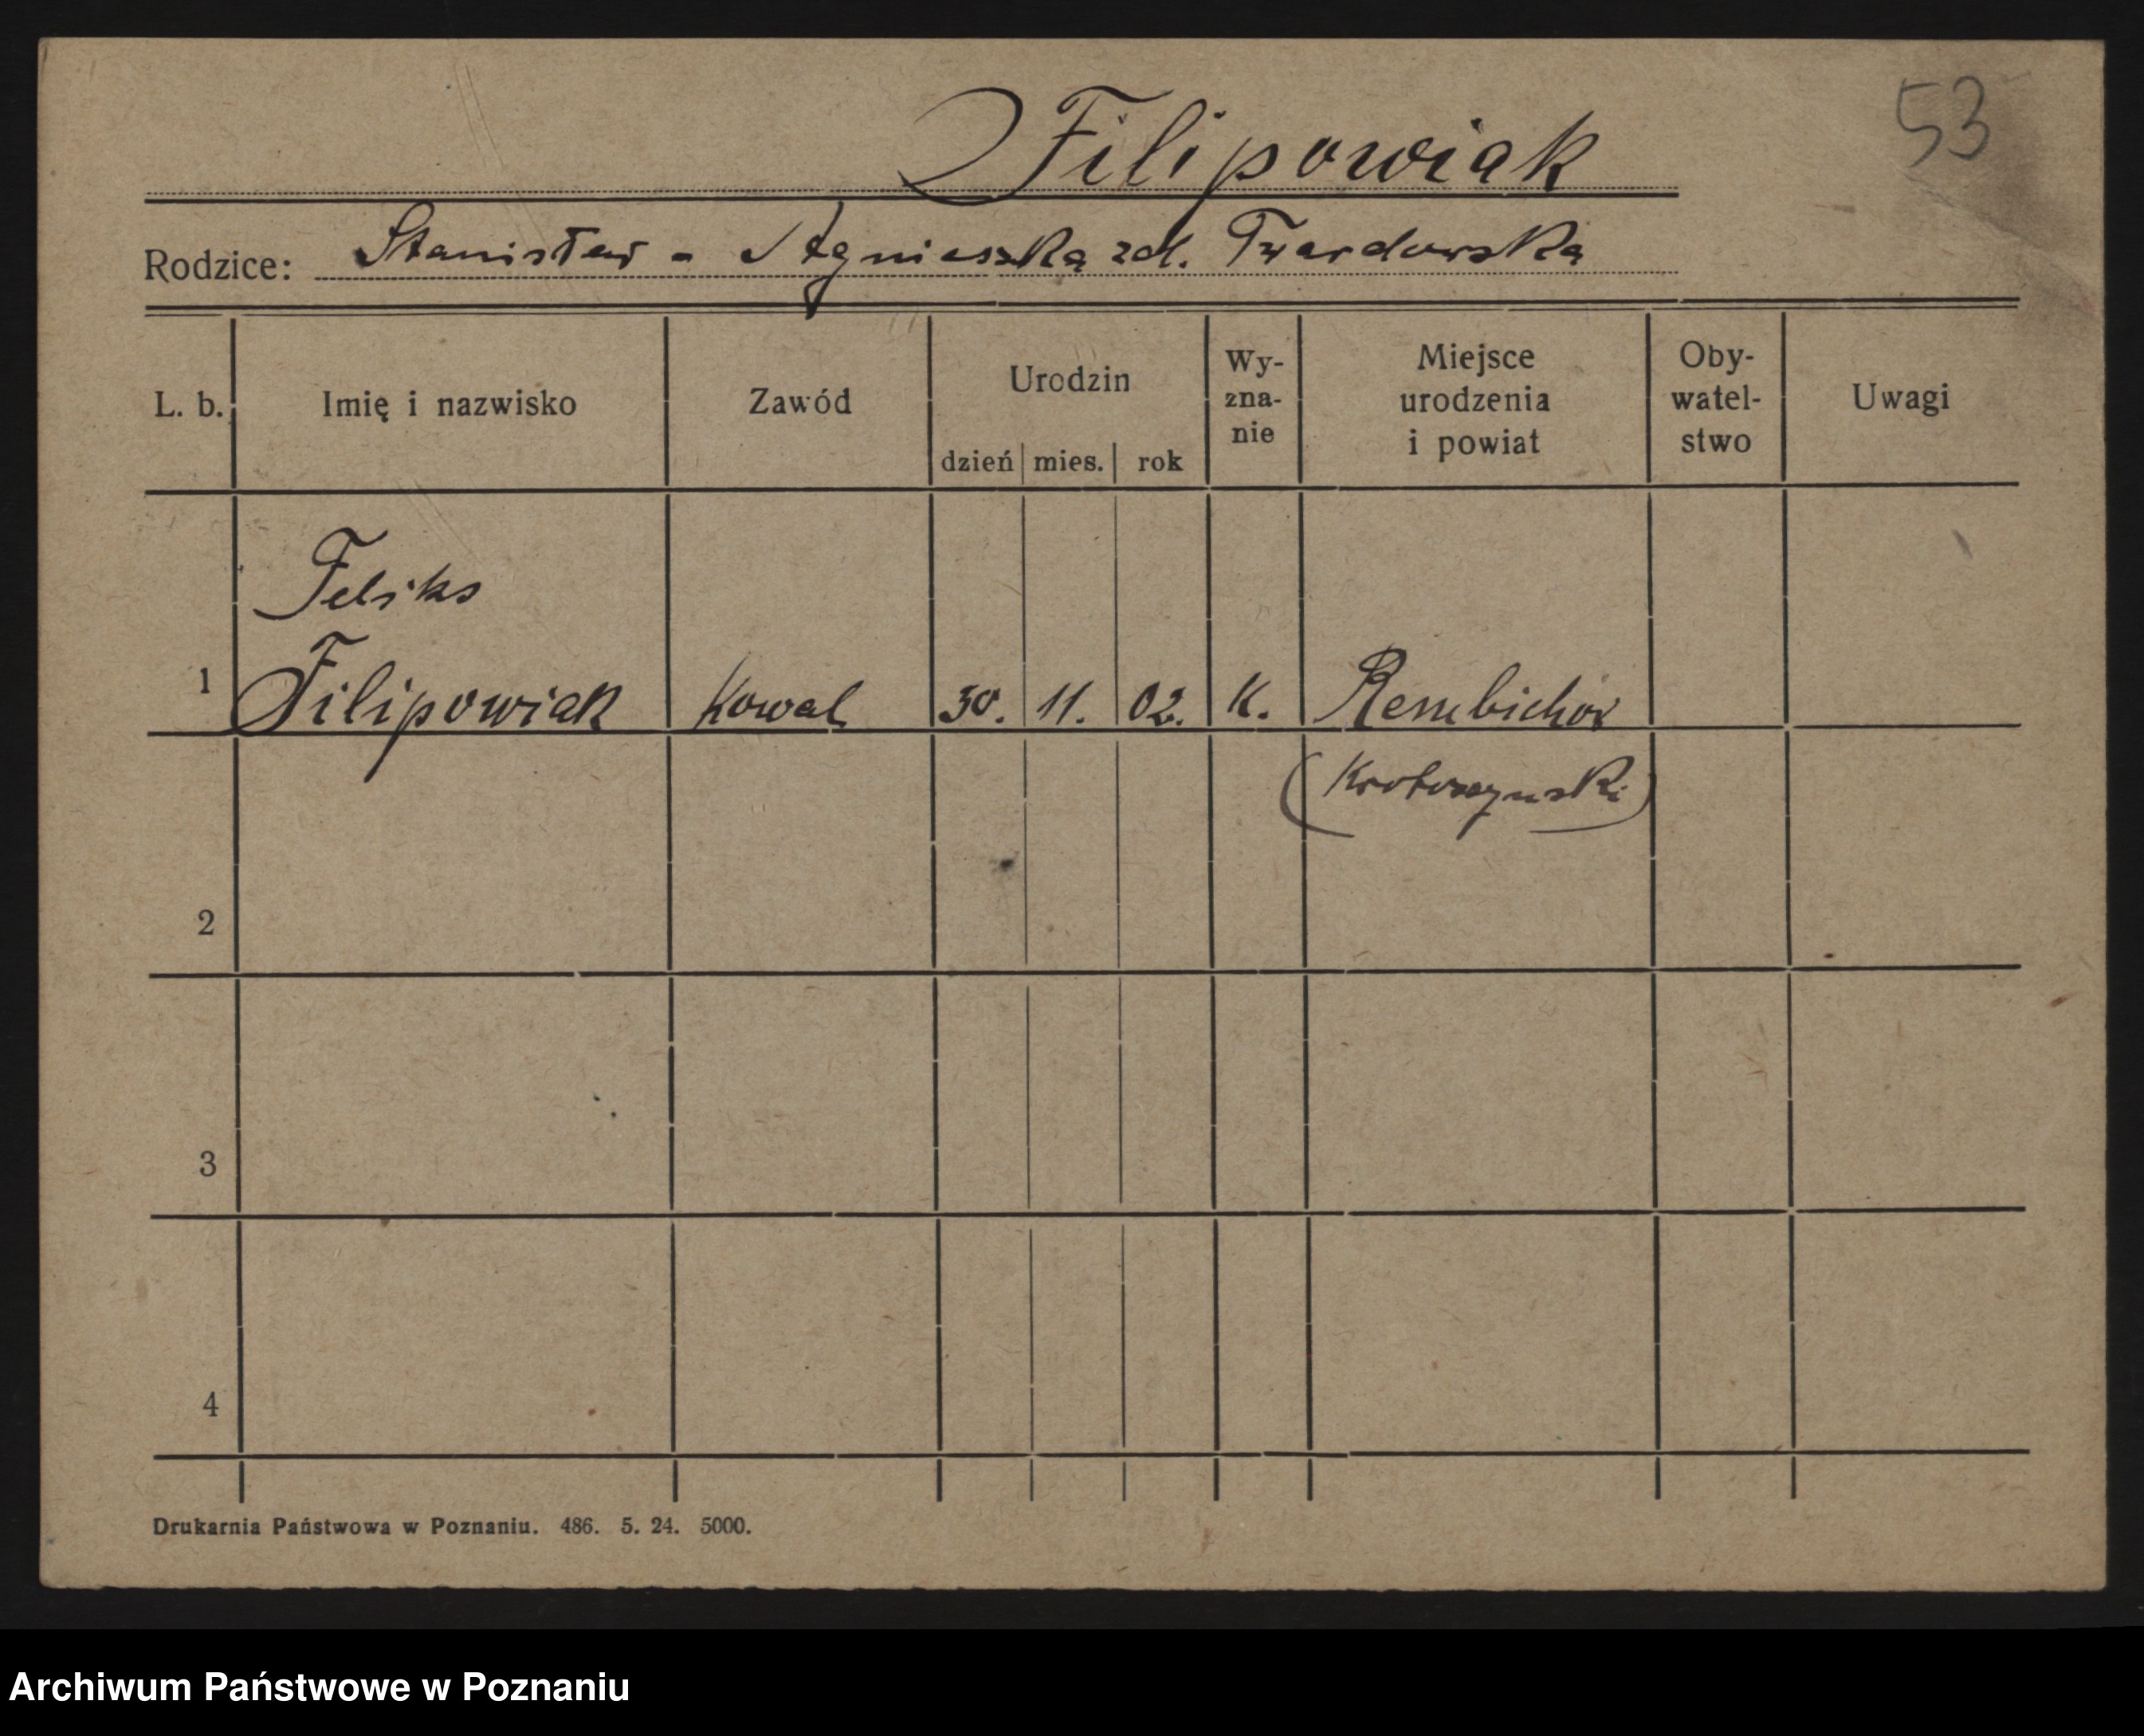 53
Filipowiak
Rodzice: Stanisław - Agnieszka zd. Twardowska
L. b. Imię i nazwisko Zawód Urodzin dzień mies. rok Wy-zna-nie Miejsce urodzenia i powiat Oby-watel-stwo Uwagi
Feliks
1 Filipowiak Kowal 30. 11. 02. K. Rembichów
(Krotoszynski)
2
3
4
Drukarnia Państwowa w Poznaniu. 486. 5. 24. 5000.
Archiwum Państwowe w Poznaniu